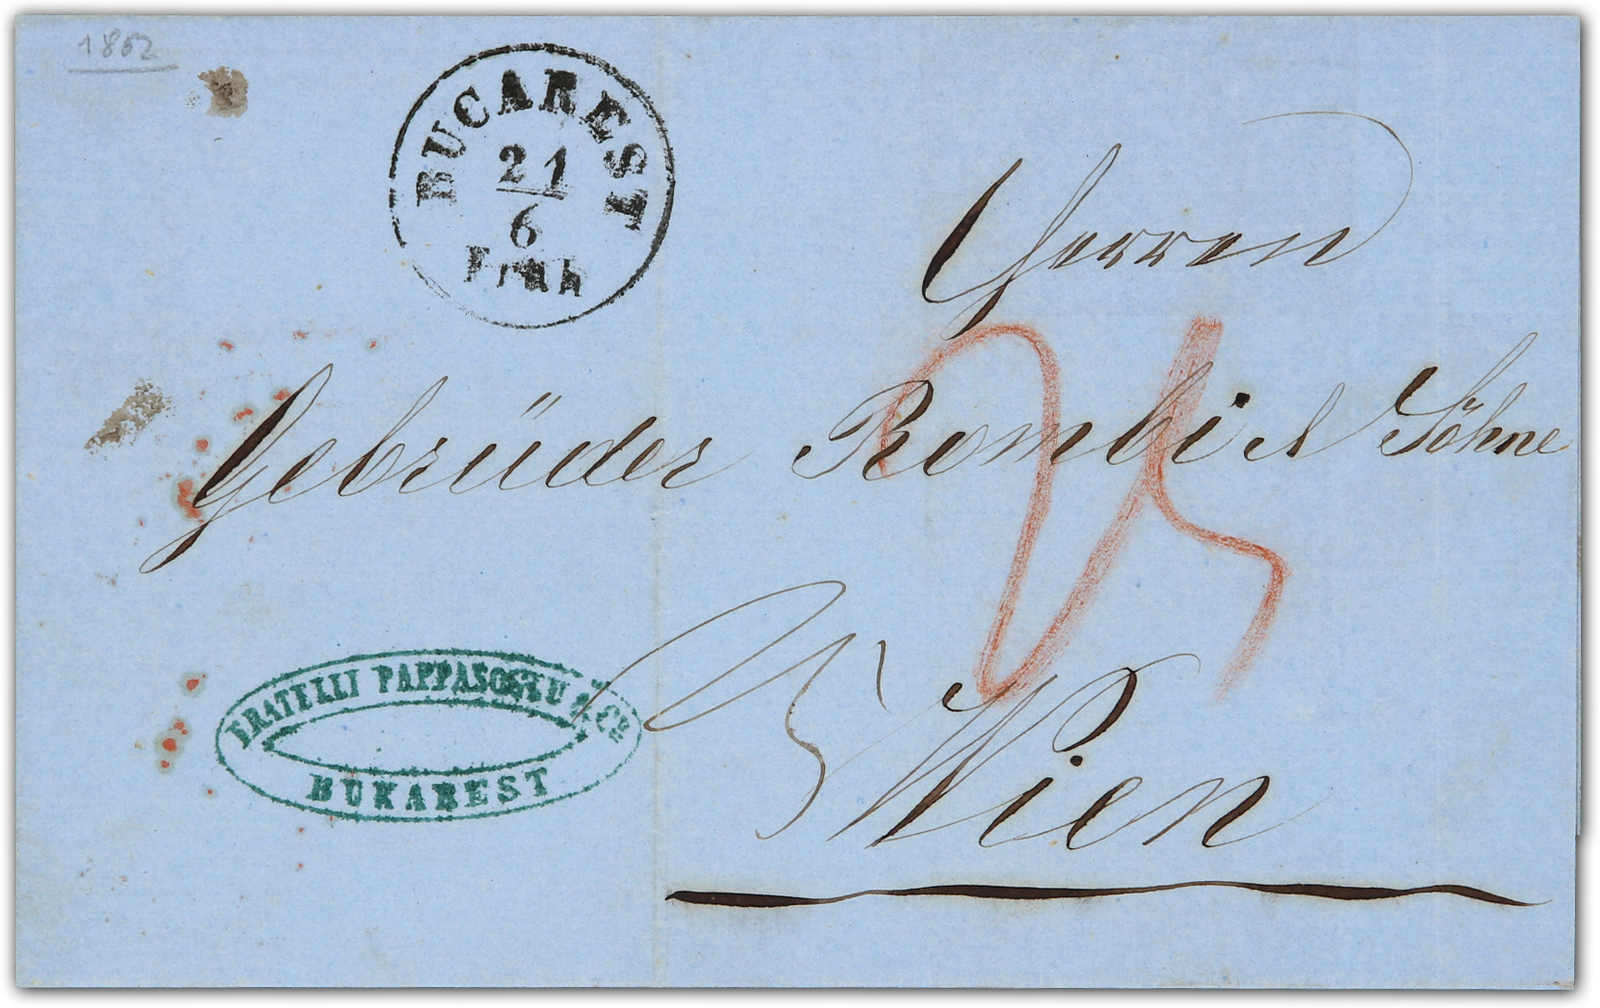 1862
BUCAREST
21
6
Früh
Herren
Gebrüder Rombi & Söhne
25
25
FRATELLI PAPPASOGLU & Co.
BUKAREST
Wien